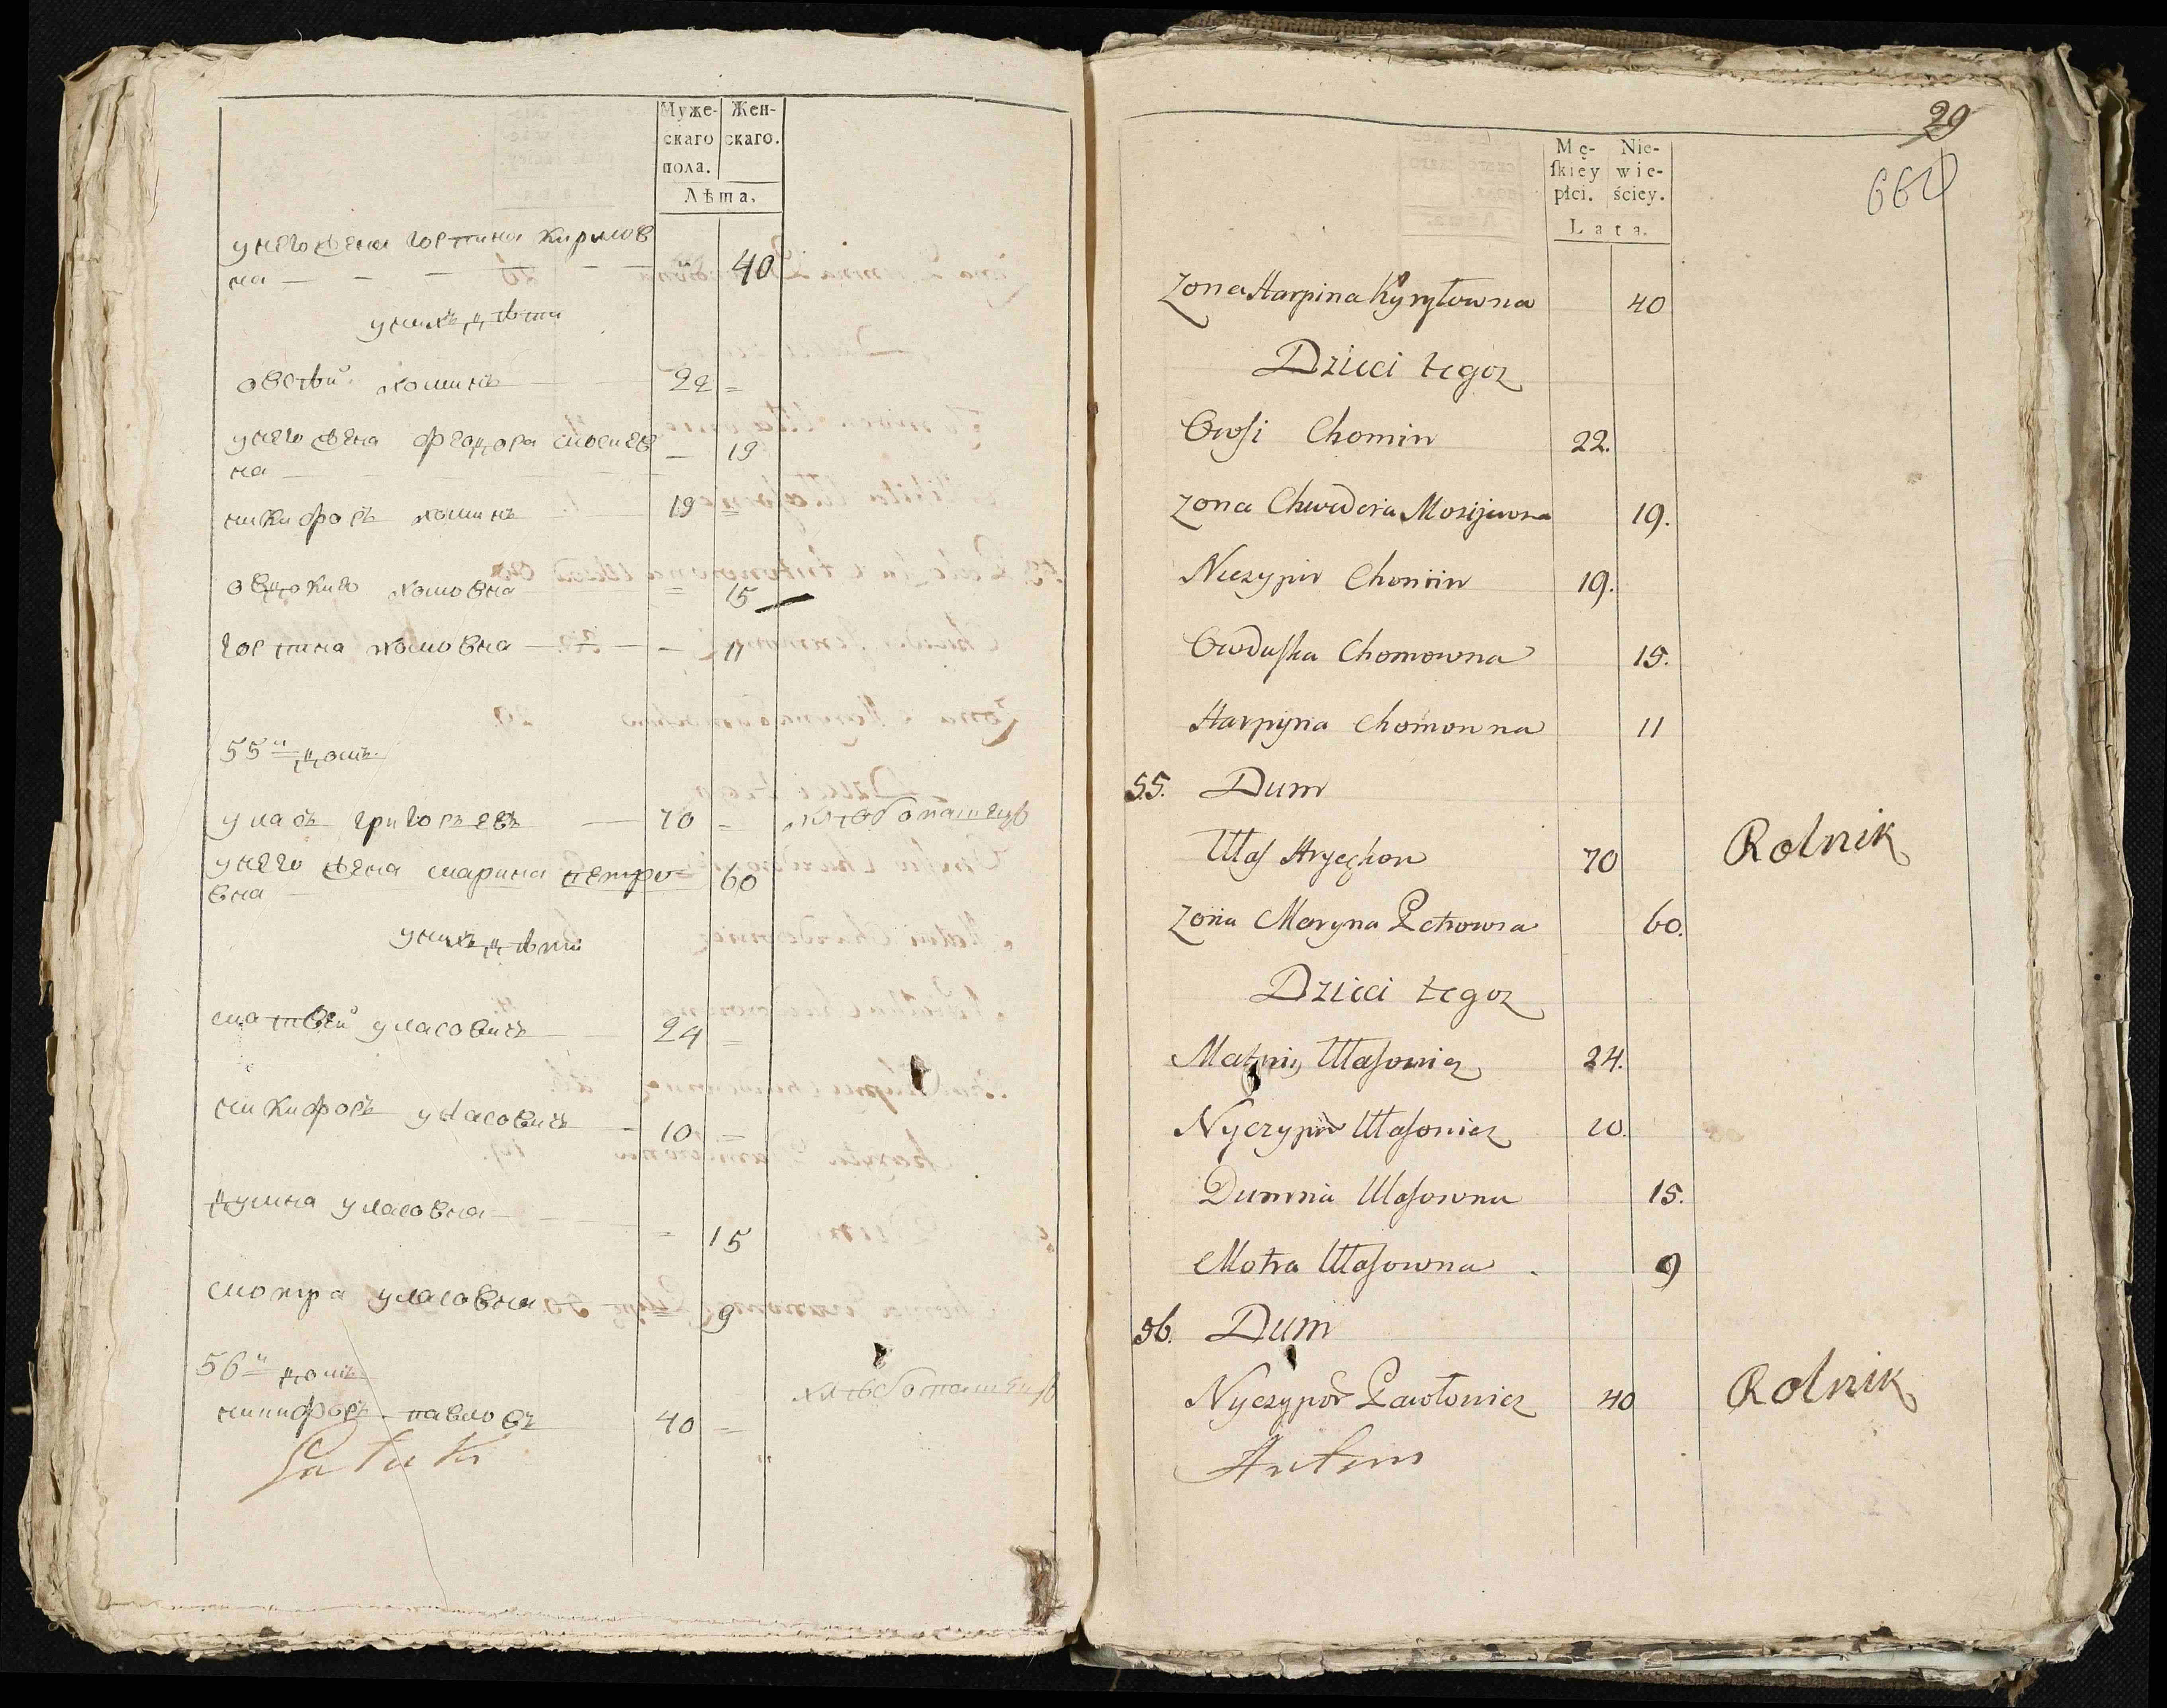 Муже-
скаго
пола.
Жен-
скаго.
Лѣта.
унего жена горпина кирилов
на — 40
унихъ дѣти
овсѣй хоминъ 22 =
унего жена феодора мосиев — 19
на
никифоръ хоминъ 19 =
овдокию хомовна = 15
горпина хомовна — 11
55й домъ
уласъ григорьевъ — 70 = хлѣбопашецъ
унего жена марина петро= 60
вна
унихъ дѣти
матвѣй уласовичъ 24 =
никифоръ уласовичъ — 10 =
думна уласовна — = 15
мотра уласовна = 9
56й домъ
никифоръ павловъ 40 — хлѣбопашецъ
29
660
Mę-
ſkiey
płci.
Nie-
wie-
ściey.
Lata.
Zona Harpina Kyryłowna 40
Dzieci tegoz
Owsi Chomin 22.
Zona Chwedora Mosijewna 19.
Niczypir Chomin 19.
Owduſka Chomowna 15.
Harpyna Chomowna 11
55. Dum
Ułaſ Hryeghow 70 Rolnik
Zona Maryna Petrowna 60.
Dzieci tegoz
Matwiy Ułaſowicz 24.
Nyczypir Ułaſowicz 10.
Dumnia Ułaſowna 15.
Motra Ułaſowna . 9
56. Dum
Nyczypor Pawłowicz 40 Rolnik